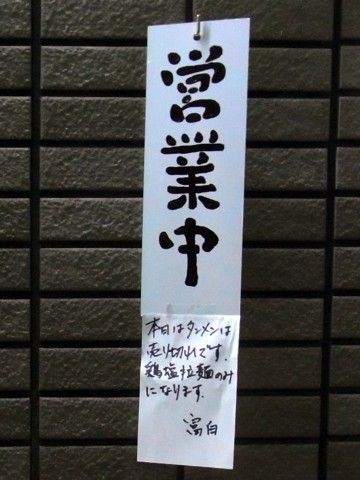 営業中
本日はタンメンは
売り切れです。
鶏塩拉麺のみ
になります。